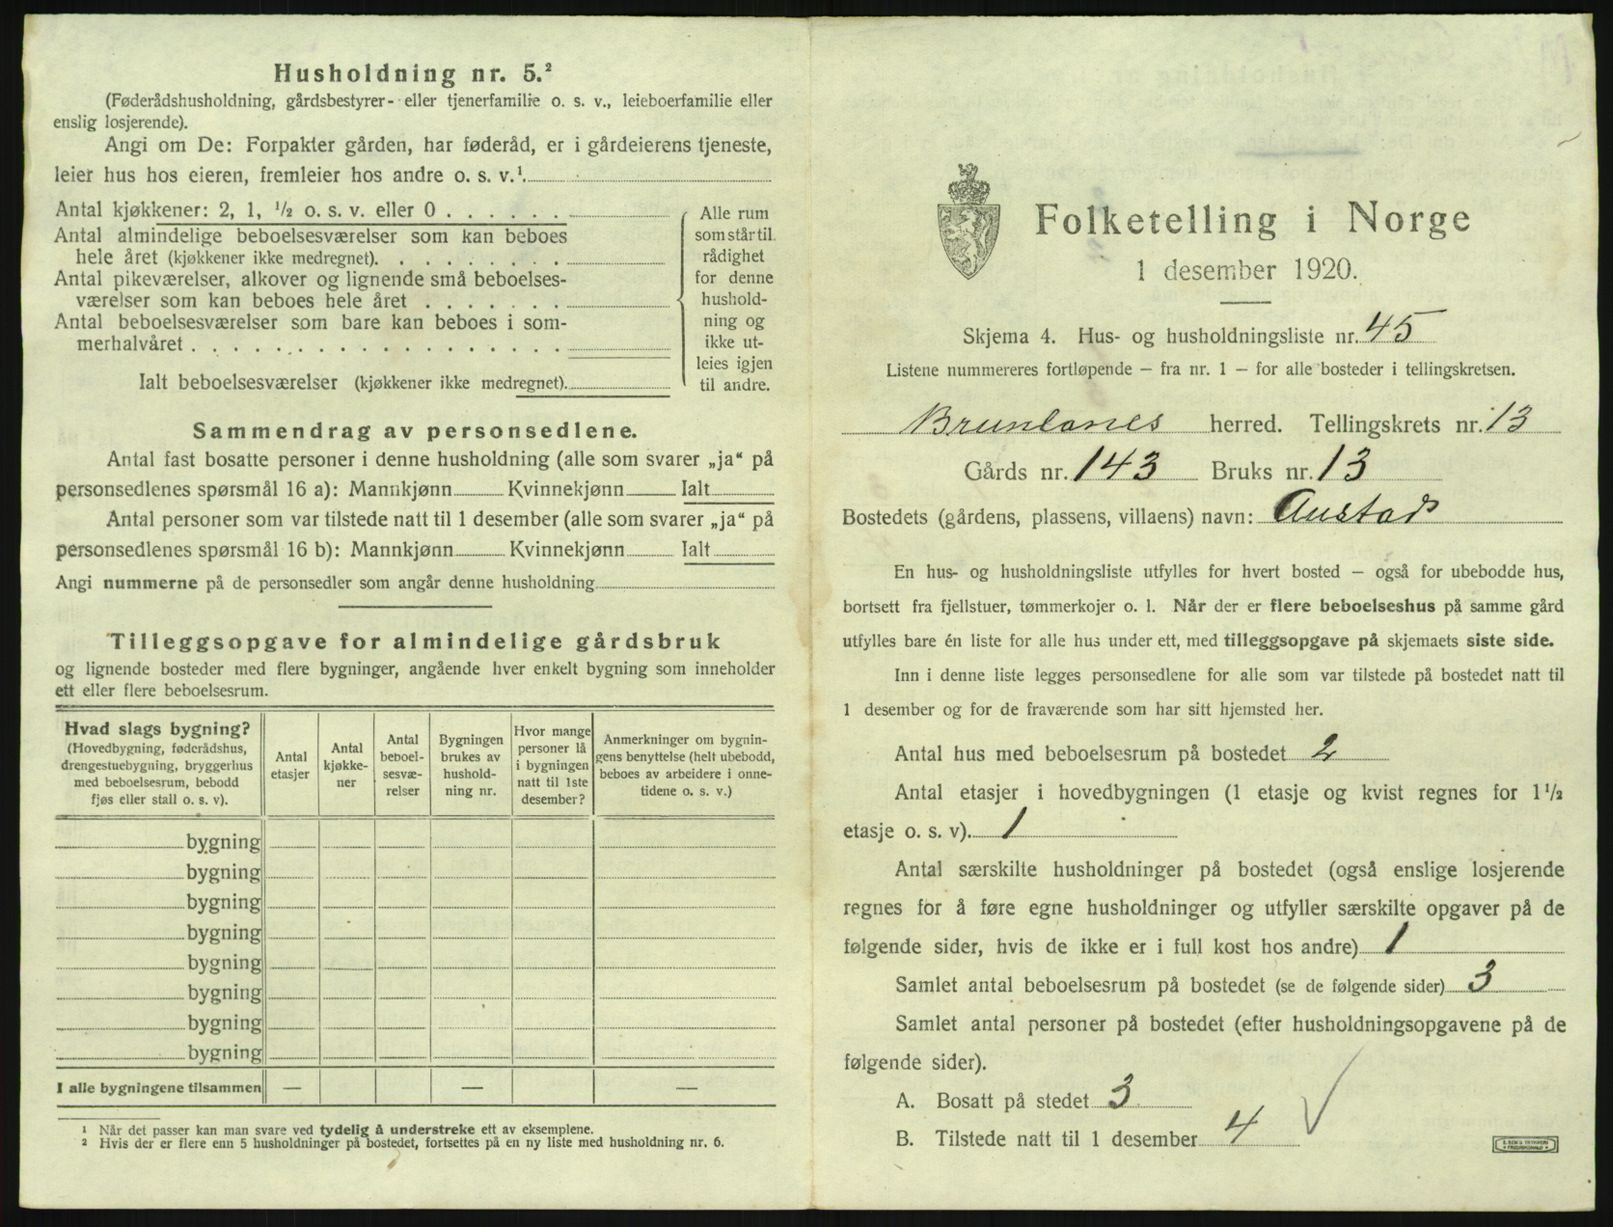 Husholdning nr. 5.²
(Føderådshusholdning, gårdsbestyrer- eller tjenerfamilie o. s. v., leieboerfamilie eller
enslig losjerende).
Angi om De: Forpakter gården, har føderåd, er i gårdeierens tjeneste,
leier hus hos eieren, fremleier hos andre o. s. v.¹.
Antal kjøkkener: 2, 1, ½ o. s. v. eller 0 . . . . . .
Antal almindelige beboelsesværelser som kan beboes
hele året (kjøkkener ikke medregnet). . . . . . . . .
Antal pikeværelser, alkover og lignende små beboelses-
værelser som kan beboes hele året . . . . . . .
Antal beboelsesværelser som bare kan beboes i som-
merhalvåret . . . . . . . . . . . . . . . . . .
Ialt beboelsesværelser (kjøkkener ikke medregnet).
Alle rum
som står til
rådighet
for denne
hushold-
ning og
ikke ut-
leies igjen
til andre.
Sammendrag av personsedlene.
Antal fast bosatte personer i denne husholdning (alle som svarer „ja“ på
personsedlenes spørsmål 16 a): Mannkjønn Kvinnekjønn Ialt
Antal personer som var tilstede natt til 1 desember (alle som svarer „ja“ på
personsedlenes spørsmål 16 b): Mannkjønn Kvinnekjønn Ialt
Angi nummerne på de personsedler som angår denne husholdning
Tilleggsopgave for almindelige gårdsbruk
og lignende bosteder med flere bygninger, angående hver enkelt bygning som inneholder
ett eller flere beboelsesrum.
Hvad slags bygning?
(Hovedbygning, føderådshus,
drengestuebygning, bryggerhus
med beboelsesrum, bebodd
fjøs eller stall o. s. v.).
Antal
etasjer
Antal
kjøkke-
ner
Antal
beboel-
sesvæ-
relser
Bygningen
brukes av
hushold-
ning nr.
Hvor mange
personer lå
i bygningen
natt til 1ste
desember?
Anmerkninger om bygnin-
gens benyttelse (helt ubebodd,
beboes av arbeidere i onne-
tidene o. s. v.)
bygning
bygning
bygning
bygning
bygning
bygning
bygning
bygning
I alle bygningene tilsammen — — —
¹ Når det passer kan man svare ved tydelig å understreke ett av eksemplene.
² Hvis der er flere enn 5 husholdninger på bostedet, fortsettes på en ny liste med husholdning nr. 6.
Folketelling i Norge
1 desember 1920.
Skjema 4. Hus- og husholdningsliste nr. 45
Listene nummereres fortløpende – fra nr. 1 – for alle bosteder i tellingskretsen.
Brunlanes herred. Tellingskrets nr. 13
Gårds nr. 143 Bruks nr. 13
Bostedets (gårdens, plassens, villaens) navn: Austad
En hus- og husholdningsliste utfylles for hvert bosted – også for ubebodde hus,
bortsett fra fjellstuer, tømmerkojer o. l. Når der er flere beboelseshus på samme gård
utfylles bare én liste for alle hus under ett, med tilleggsopgave på skjemaets siste side.
Inn i denne liste legges personsedlene for alle som var tilstede på bostedet natt til
1 desember og for de fraværende som har sitt hjemsted her.
Antal hus med beboelsesrum på bostedet 2
Antal etasjer i hovedbygningen (1 etasje og kvist regnes for 1½
etasje o. s. v). 1
Antal særskilte husholdninger på bostedet (også enslige losjerende
regnes for å føre egne husholdninger og utfyller særskilte opgaver på de
følgende sider, hvis de ikke er i full kost hos andre) 1
Samlet antal beboelsesrum på bostedet (se de følgende sider) 3
Samlet antal personer på bostedet (efter husholdningsopgavene på de
følgende sider).
A. Bosatt på stedet 3
B. Tilstede natt til 1 desember 4